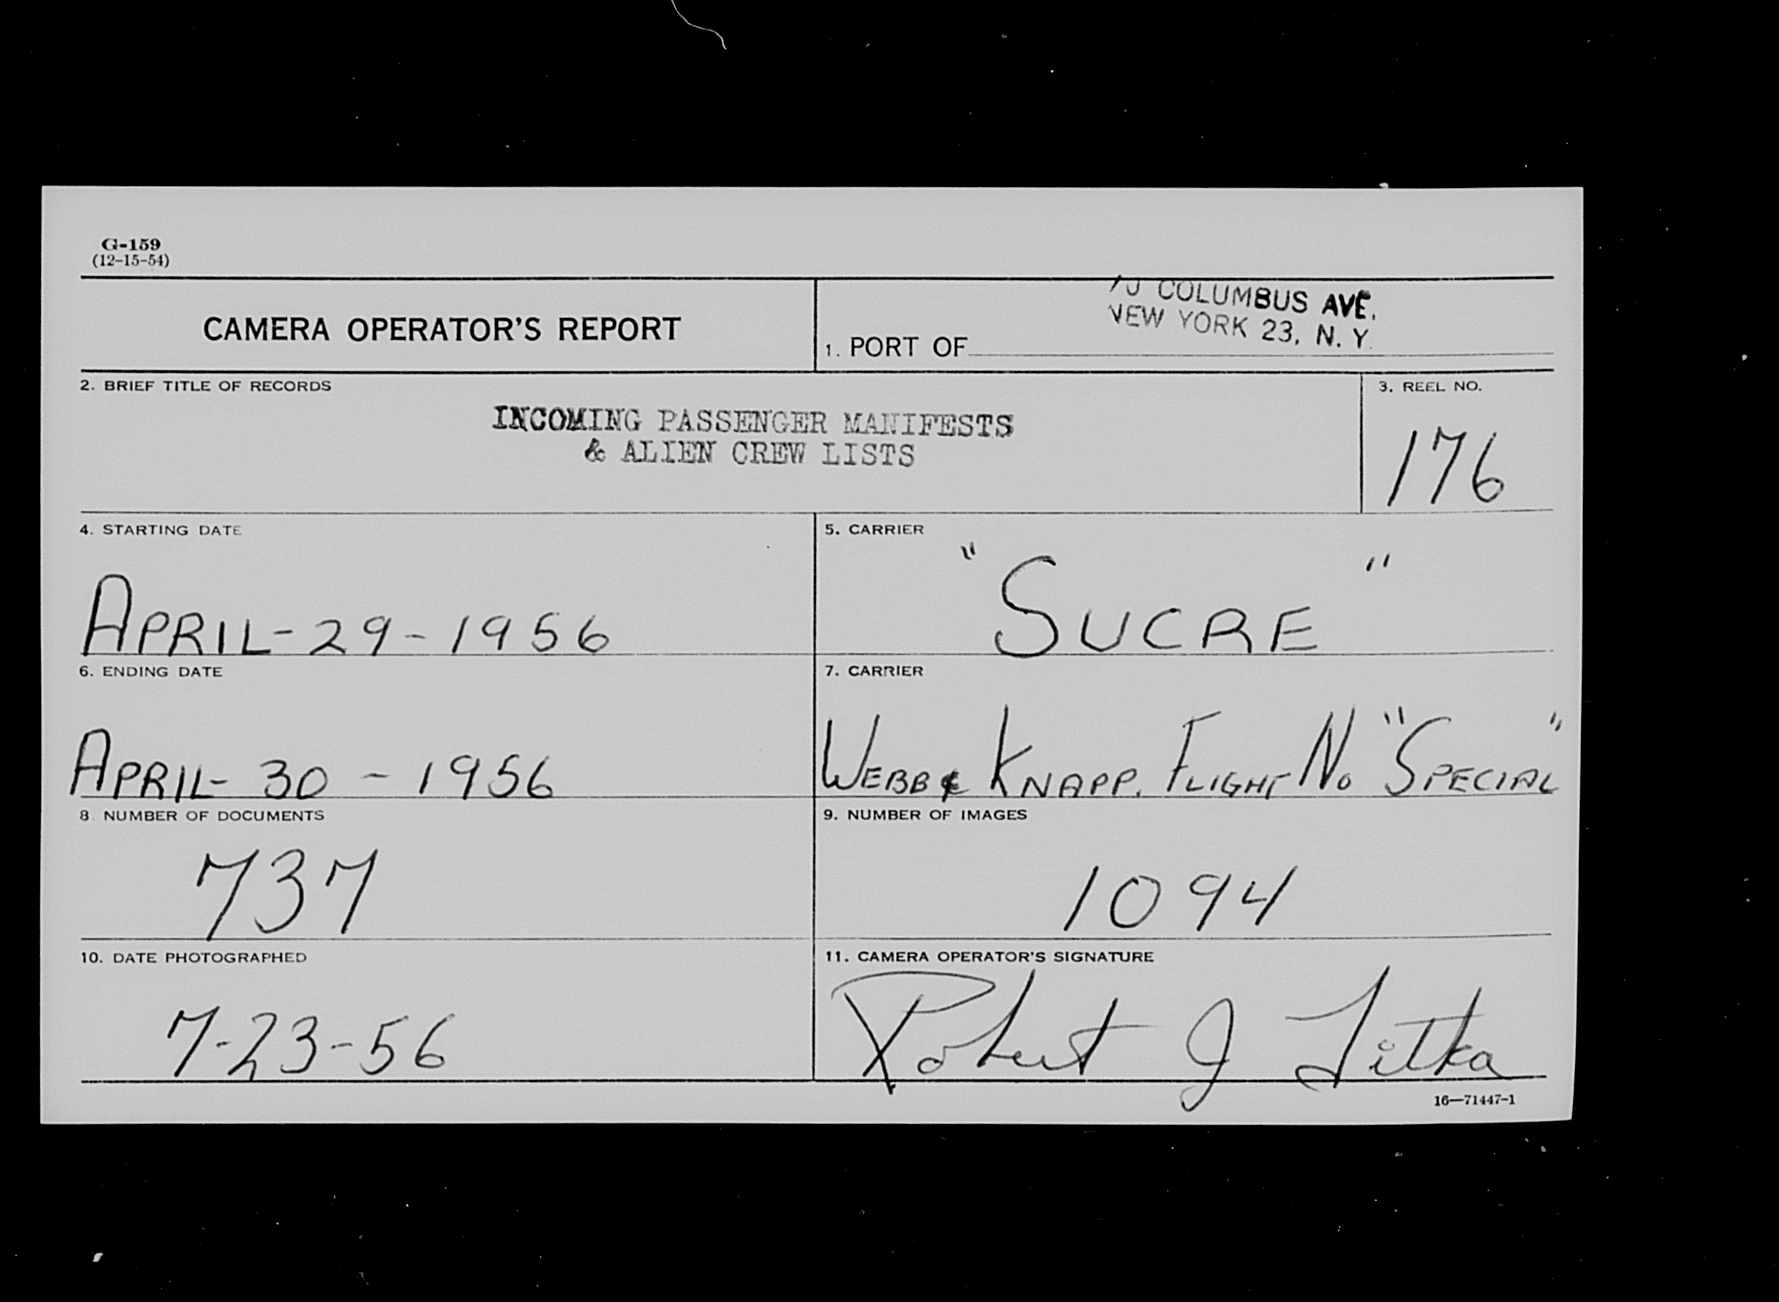 G-159
(12-15-54)
CAMERA OPERATOR'S REPORT
70 COLUMBUS AVE.
NEW YORK 23, N. Y.
1. PORT OF
2. BRIEF TITLE OF RECORDS
INCOMING PASSENGER MANIFESTS
& ALIEN CREW LISTS
3. REEL NO.
176
4. STARTING DATE
APRIL-29-1956
5. CARRIER
"SUCRE"
6. ENDING DATE
APRIL-30-1956
7. CARRIER
WEBB & KNAPP. FLIGHT No "SPECIAL"
8. NUMBER OF DOCUMENTS
737
9. NUMBER OF IMAGES
1094
10. DATE PHOTOGRAPHED
7-23-56
11. CAMERA OPERATOR'S SIGNATURE
Robert J
16—71447-1